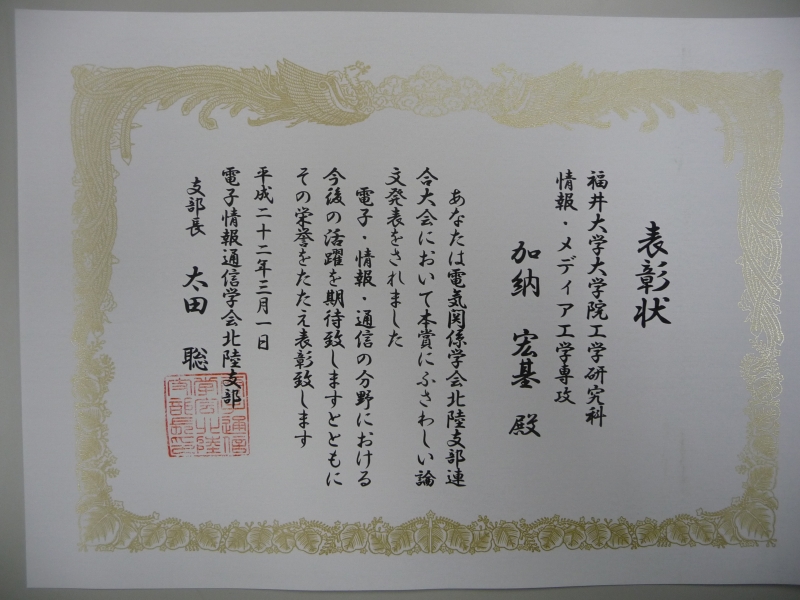 表彰状
福井大学大学院工学研究科
情報・メディア工学専攻
加納 宏基 殿
あなたは電気関係学会北陸支部連
合大会において本賞にふさわしい論
文発表をされました
電子・情報・通信の分野における
今後の活躍を期待致しますとともに
その栄誉をたたえ表彰致します
平成二十二年三月一日
電子情報通信学会北陸支部
支部長 太田 聡